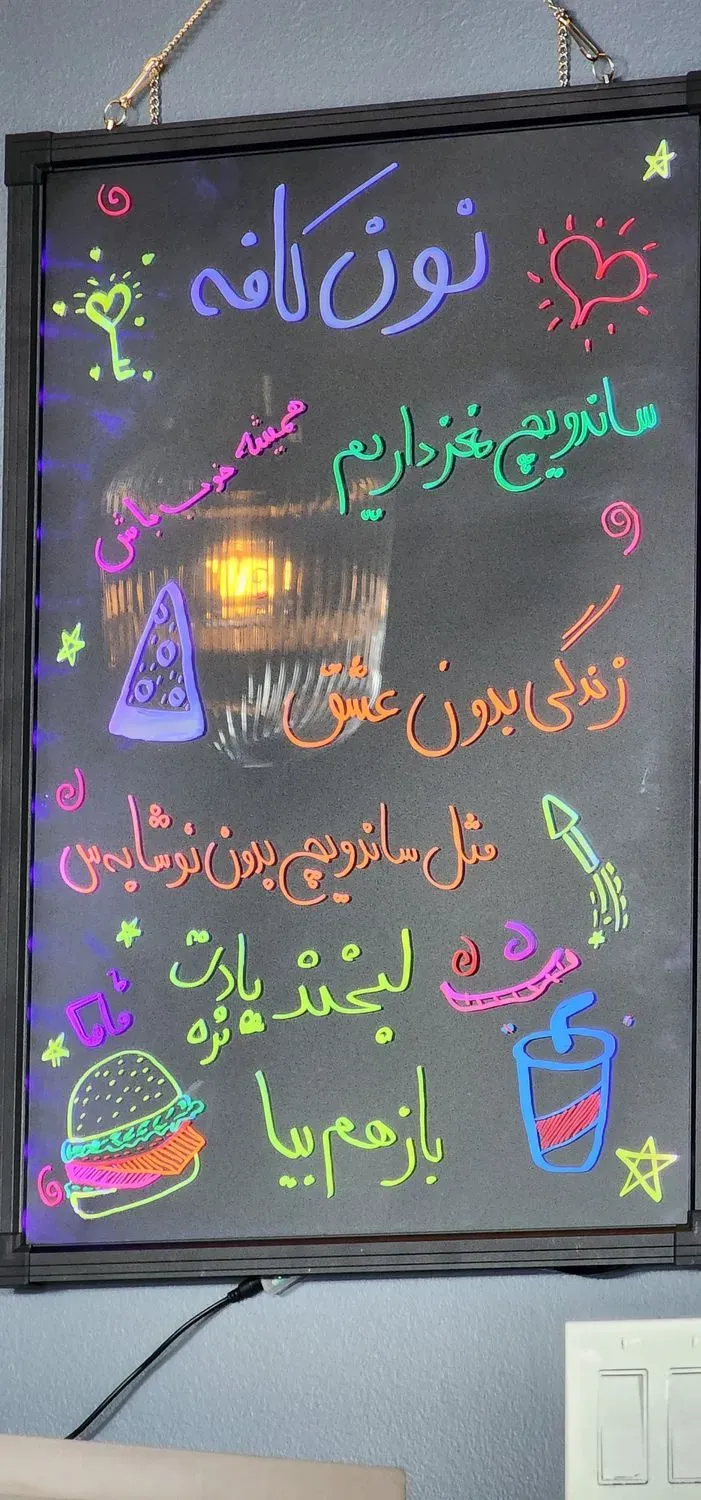 نون کافه
ساندویچ نغز داریم
همیشه خوب باش
زندگی بدون عشق
مثل ساندویچ بدون نوشابه س
لبخند یادت
نره
باز هم بیا